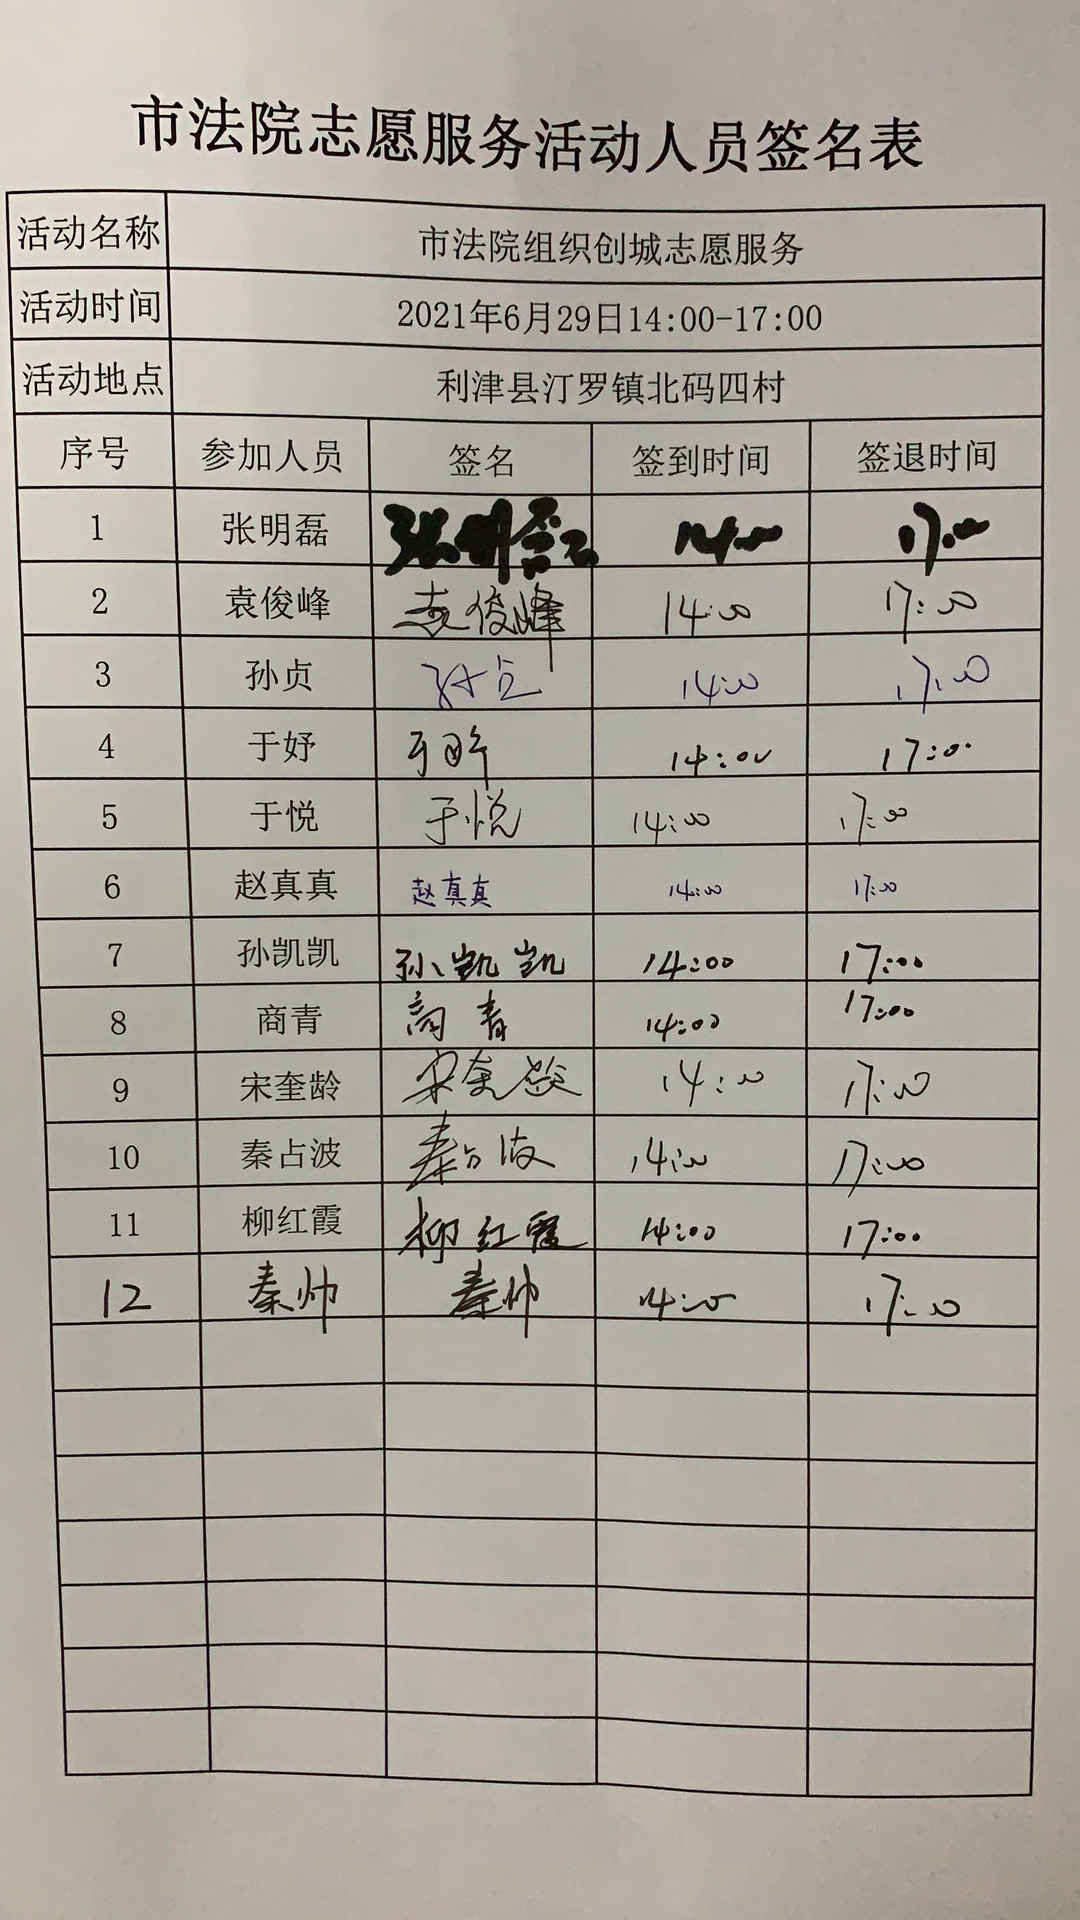 市法院志愿服务活动人员签名表
活动名称 市法院组织创城志愿服务
活动时间 2021年6月29日14:00-17:00
活动地点 利津县汀罗镇北码四村
序号 参加人员 签名 签到时间 签退时间
1 张明磊 张明磊 14:00 17:00
2 袁俊峰 袁俊峰 14:00 17:00
3 孙贞 孙贞 14:00 17:00
4 于妤 14:00 17:00
5 于悦 于悦 14:00 17:00
6 赵真真 赵真真 14:00 17:00
7 孙凯凯 孙凯凯 14:00 17:00
8 商青 商青 14:00 17:00
9 宋奎龄 宋奎龄 14:00 17:00
10 秦占波 秦占波 14:00 17:00
11 柳红霞 柳红霞 14:00 17:00
12 秦帅 秦帅 14:00 17:00